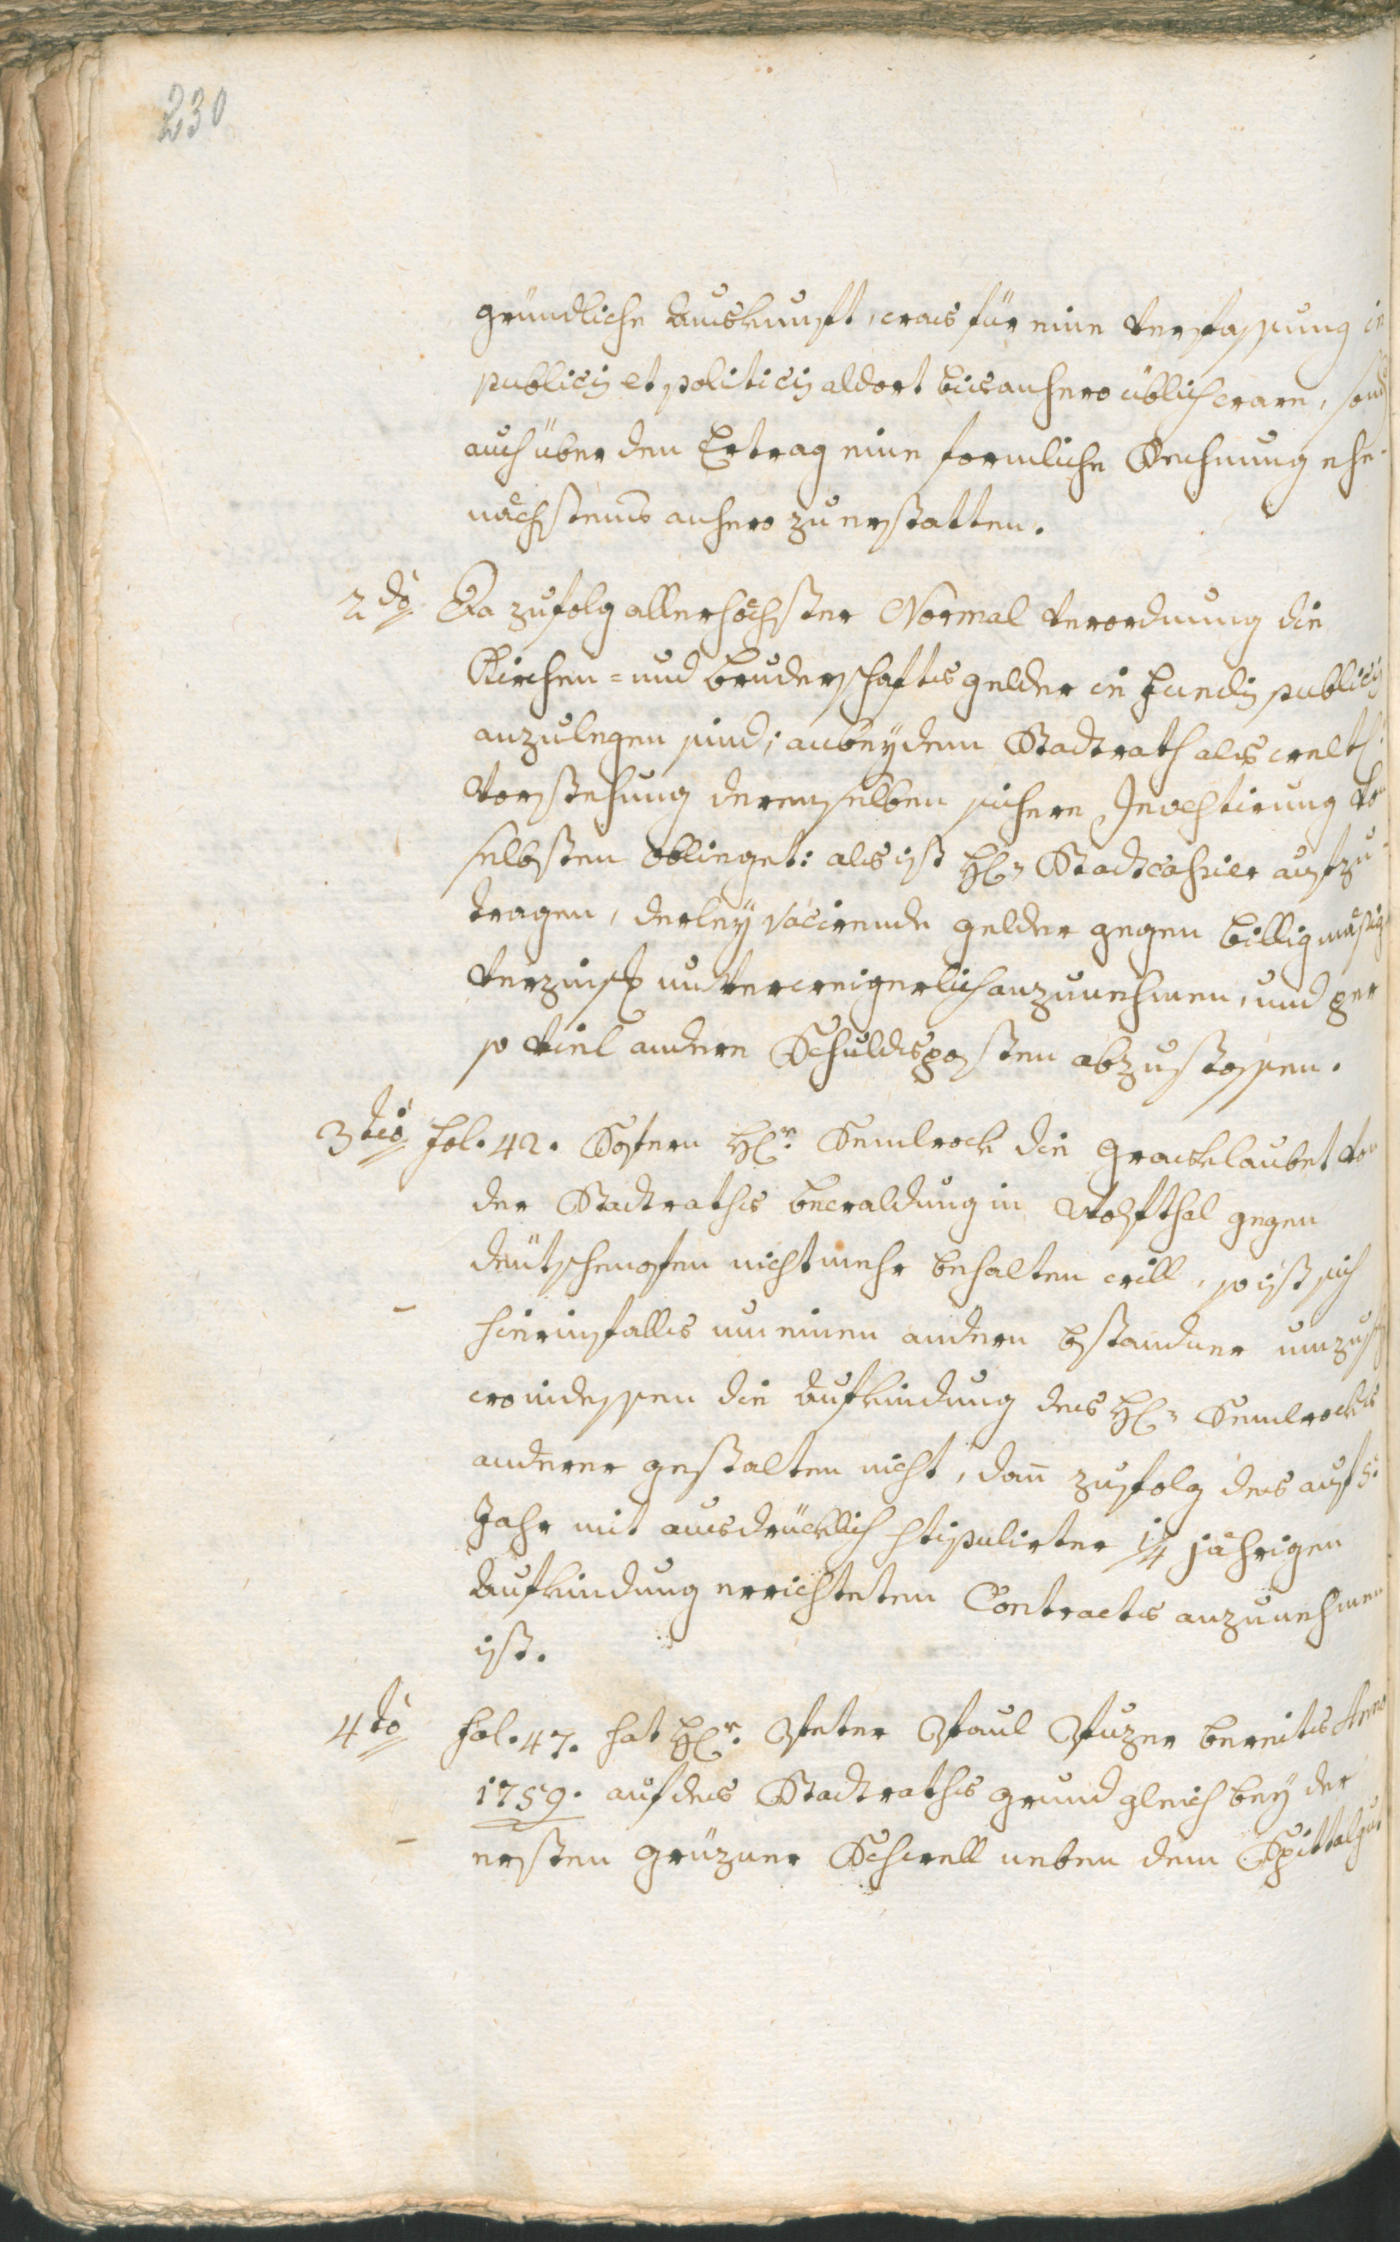 230
gründliche Auskunft, was für eine Verfassung in
publicis et politicis aldort bis anhero üblich ware, sond
auch über den Ertrag eine formliche Rechnung ehe-
nächstens anhero zu erstatten.
2do Da zufolg allerhöchster Normal Verordnung die
Kirchen- und Bruderschafts gelder in Fundis publicis
anzulegen sind; anbey dem Stadtrath als weltl:
Vorstehung derenselben sichere Investirung
selbsten obliget: als ist H: Stadtcassier aufzu-
tragen, derley vacirende gelder gegen billigmäsig
Verzinß unverweigerlich anzunehmen, und per
so viel andere Schuldsposten abzustossen.
3tio Fol. 42. Sofern Hr: Semlrock die Grasklaubet von
der Stadtraths bewaldung in Wolfsthal gegen
Deütschenofen nicht mehr behalten will, so ist sich
hierinfalls um einen andern bständner
wo indessen die Aufkindung des H: Semlrocks
anderer gestalten nicht, dann zufolg des auf 5:
Jahr mit ausdrücklich stipulirter 1/4 jährigen
Aufkindung errichteten Contracts anzunehmen
ist.
4to Fol. 47. hat Hr: Peter Paul Puzer bereits Anno
1759. auf des Stadtraths grund gleich bey der
ersten grüzner Schwell neben dem